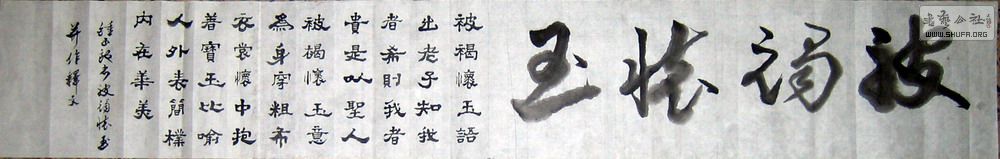 被褐懷玉
被褐懷玉語
出老子知我
者希則我者
貴是以聖人
被褐懷玉意
為身穿粗布
衣裳懷中抱
著寶玉比喻
人外表簡樸
内在華美
書被褐懷玉
并作釋文
書藝公社
WWW.SHUFA.ORG